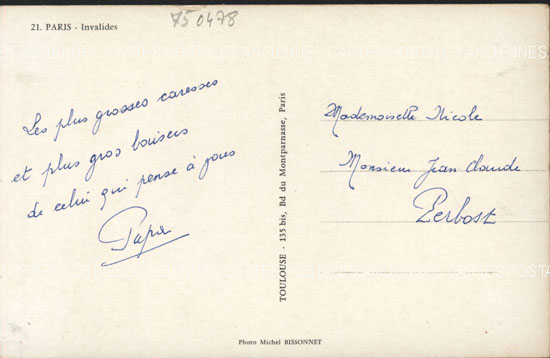 75 0478
21. PARIS - Invalides
CARTES POSTALES ANCIENNES
Les plus grosses caresses
et plus gros baisers
de celui qui pense à vous
Papa
TOULOUSE - 135 bis, Bd du Montparnasse, Paris
Mademoiselle Nicole
Monsieur Jean Claude
Perbost
Photo Michel BISSONNET